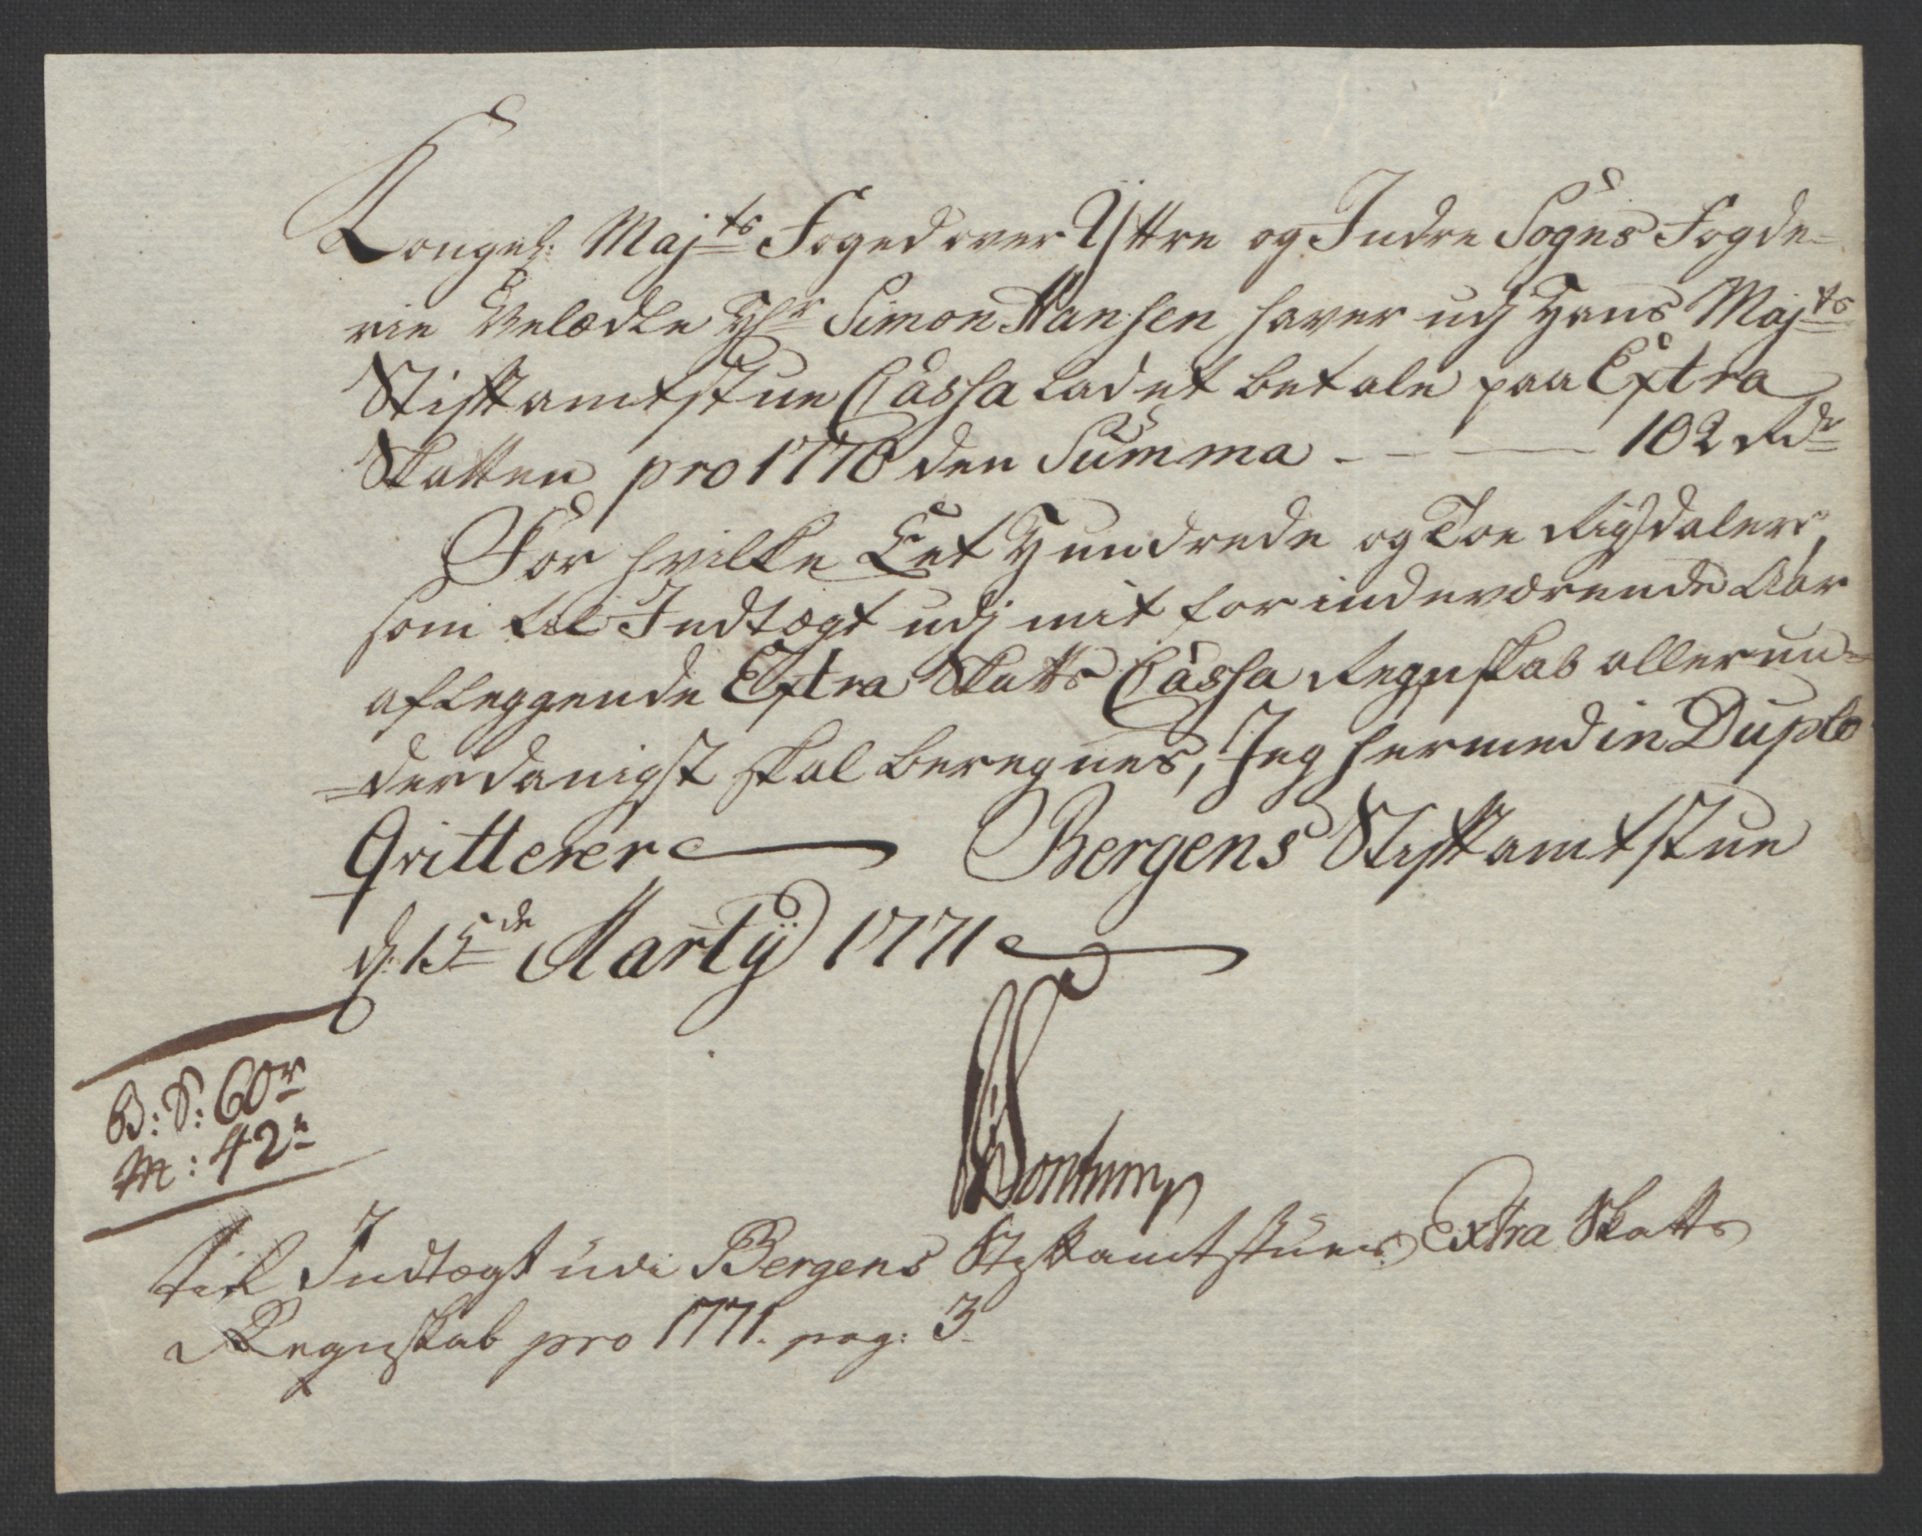 Kongel: Maj^ts Foged over Yttre og Indre Sogns Fogde-
rie Velædle Hr Simon Hansen haver udj Hans Maj^ts
Stiftamtstue Cassa ladet betale paa Extra
Skatten pro 1770 den Summa - - - 102 Rdr
For hvilke Eet Hundrede og Toe Rigsdaler,
som til Indtægt udj mit for indeværende Aar
aflæggende Extra Skatts Cassa Regnskab allerun-
-derdanigst skal beregnes, Jeg hermed in Duplo
Qvitterer Bergens Stiftamtstue
d: 15de Marty 1771
B: S: 60r
M: 42r
Til Indtægt udi Bergens Stiftamtstues Extra Skatts
Regnskab pro 1771. pag: 3